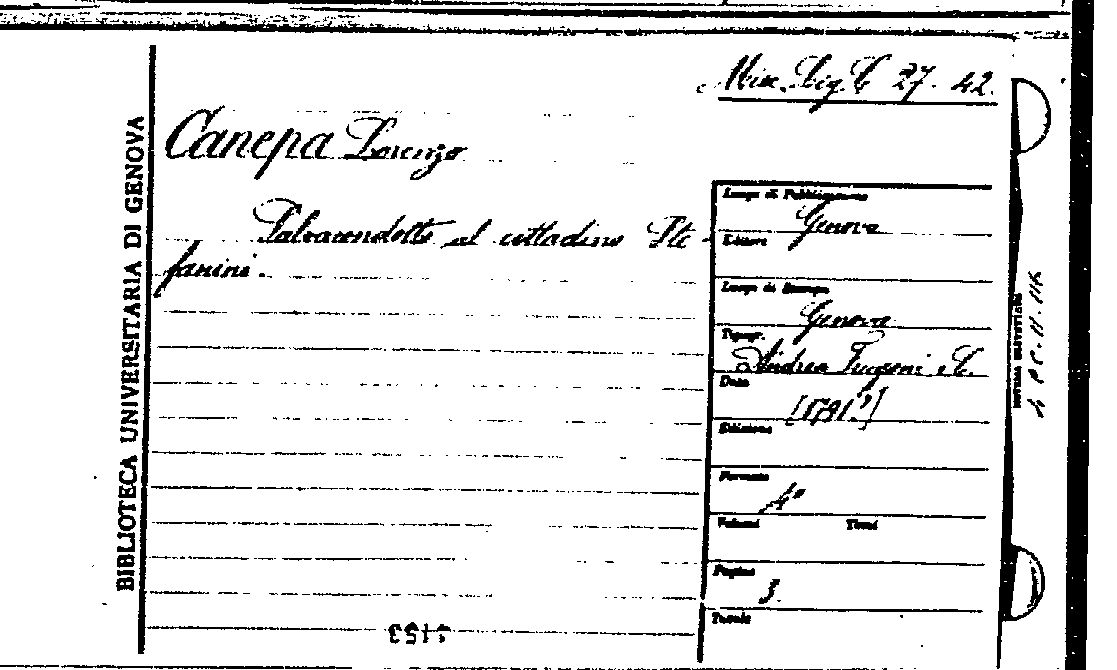 Misc. Lig. C 27. 42.
Canepa Lorenzo
Salvacondotto al cittadino Ste-
fanini.
BIBLIOTECA UNIVERSITARIA DI GENOVA
Luogo di Pubblicazione
Genova
Editori
Luogo di Stampa
Genova
Tipogr.
Andrea Frugoni e C.
Data
[1791?]
Edizione
Formato
4°
Volumi Tomi
Pagine
3.
Tavole